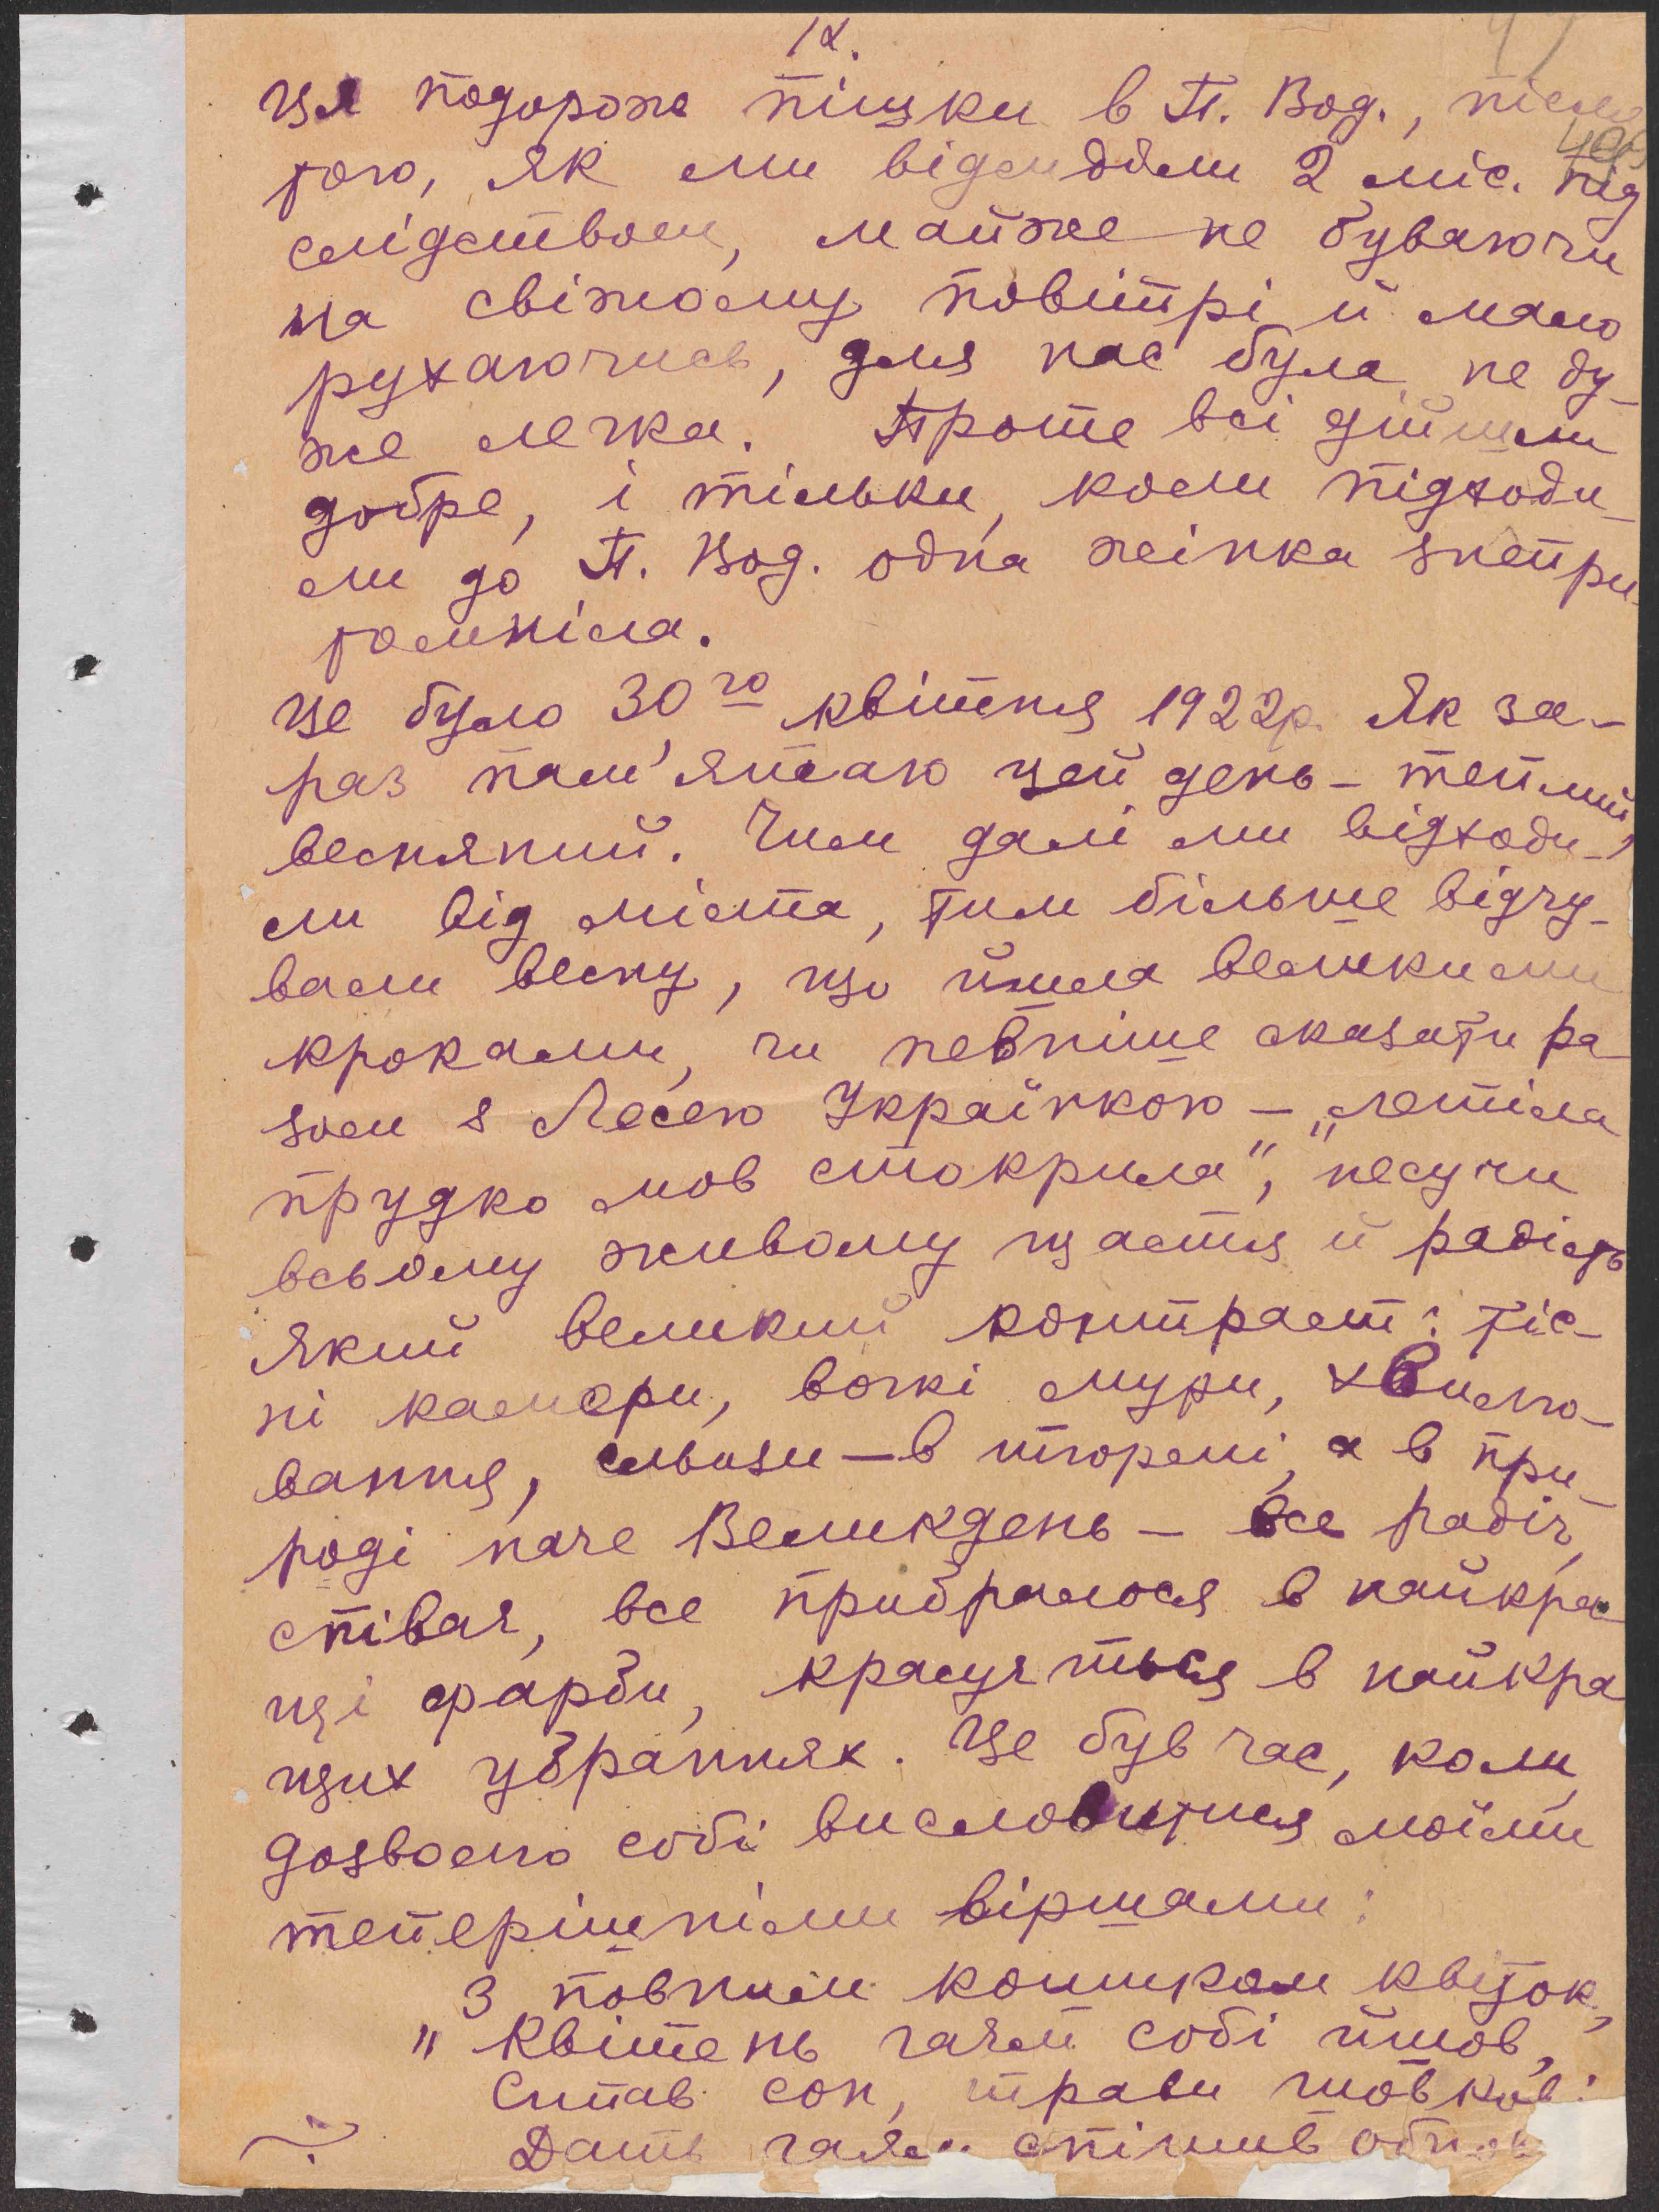 12.
49
ця подорож пішки в П. Вод., після
того, як ми відсиділи 2 міс. під
слідством, майже не буваючи
на свіжому повітрі й мало
рухаючись, для нас була не ду-
же легка. Проте всі дійшли
добре, і тільки, коли підходи-
ли до П. Вод. одна жінка знепри-
томніла.
Це було 30го квітня 1922р. Як за-
раз пам'ятаю цей день – теплий,
весняний. Чим далі ми відходи-
ли від міста, тим більше відчу-
вали весну, що йшла великими
кроками, чи певніше сказати ра-
зом з Лесею Українкою – „летіла
прудко мов стокрила", несучи
всьому живому щастя й радість
Який великий контраст: тіс-
ні камери, вогкі мури, хвилю-
вання, сльози – в тюрмі, а в при-
роді наче Великдень – все радіє,
співає, все прибралося в найкра-
щі фарби, красується в найкра
щих убраннях. Це був час, коли,
дозволю собі висловитися моїми
теперішніми віршами:
З повним кошиком квіток,
" Квітень гаєм собі йшов,
Сипав сон, трави шовков:
Дать гаям спішив